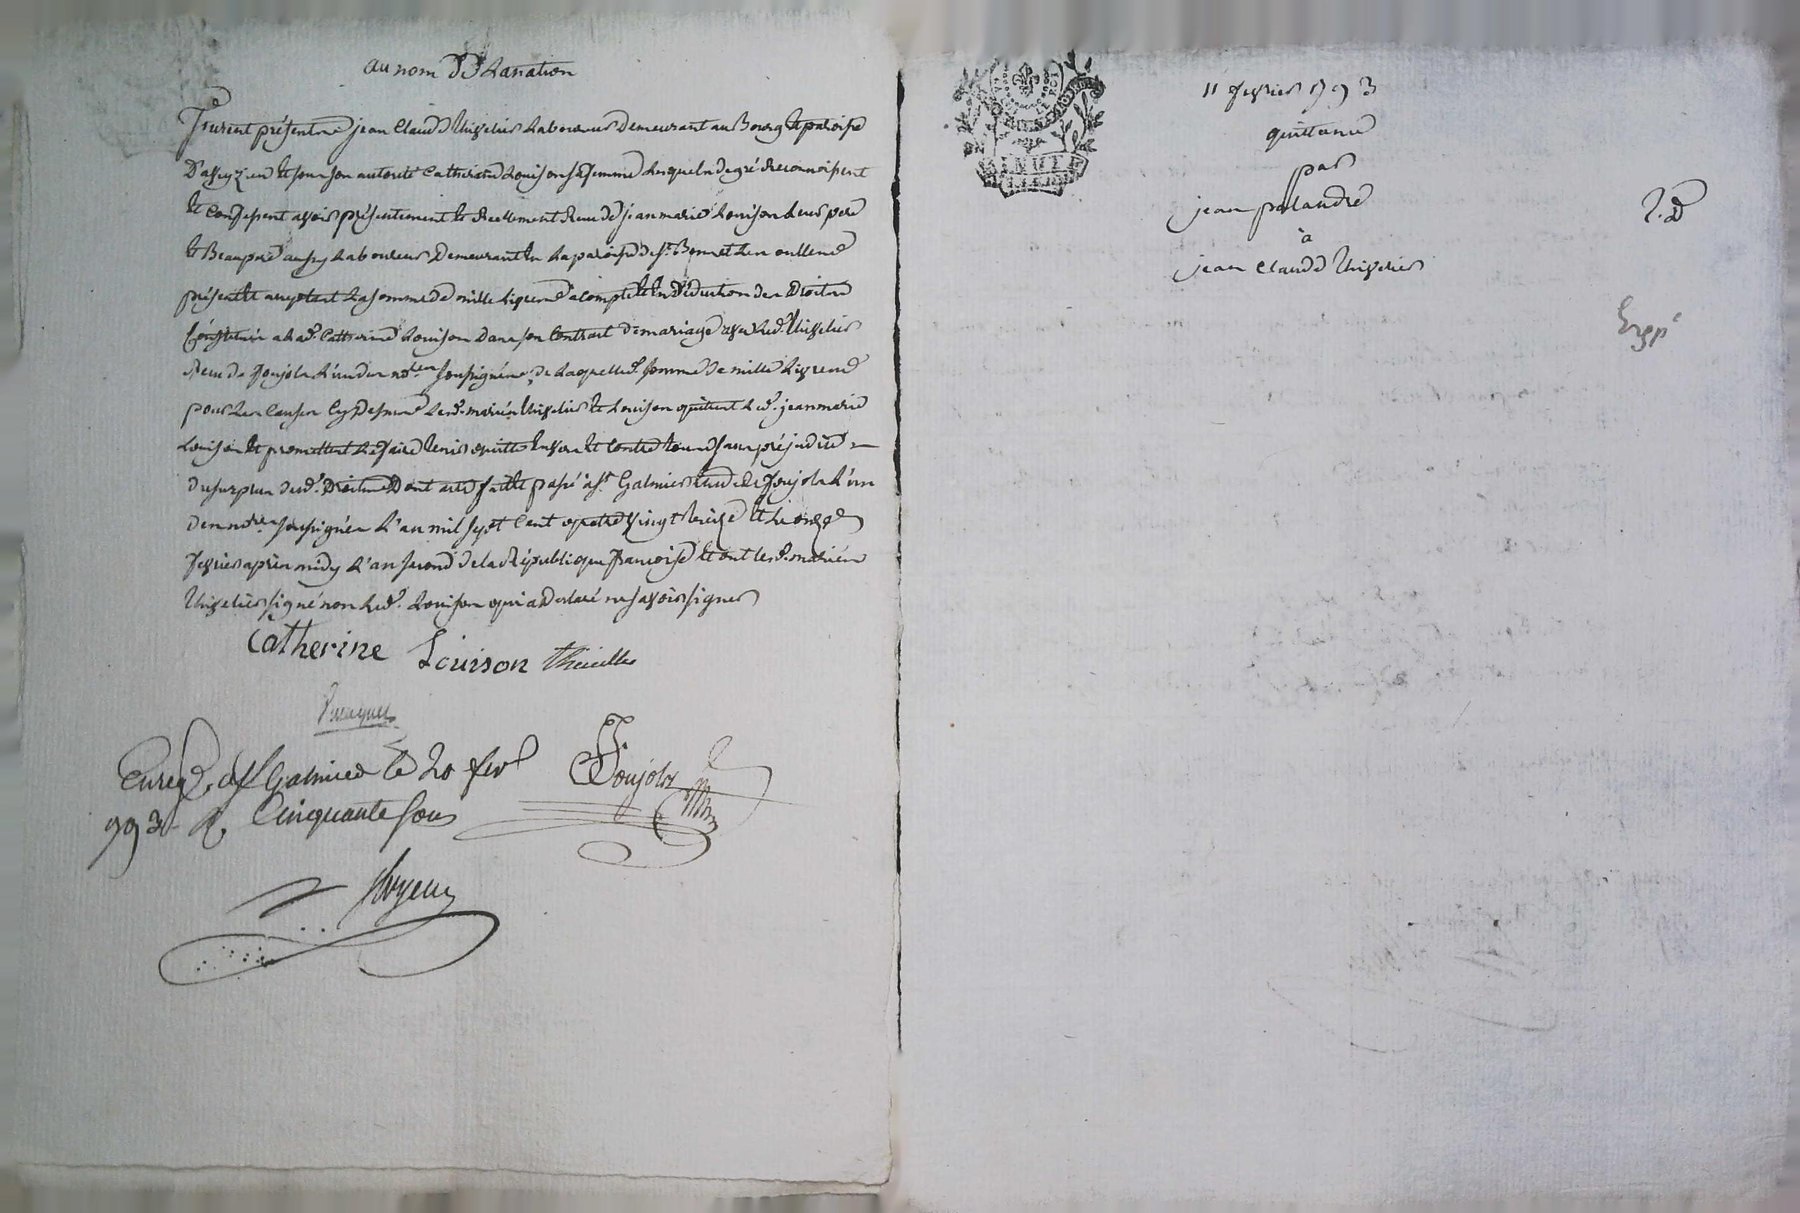 au nom De La nation
furent présents jean Claude Laboureur Demeurant au Bourg et paroisse
et sous son autorité Catherine Louison sa femme Lesquels de gré Reconnoissent
et Confessent avoir présentement et Réellement Reçu de jean marie Louison Leur pere
et Beaupere aussy Laboureur Demeurant en La paroisse de st. Bonnet Les oulles
présent et acceptant La somme de mille Livres acompte et en Déduction des Droits
Constitués a Lad. Catherine Louison Dans son Contrat de mariage avec Led.
Reçu de Joujols L'un des nores. soussignés, de Laquelle somme de mille Livres
pour Les Causes Cy Dessus Lesd. mariés et Louison quittent Led. jean marie
Louison et promettent Le faire tenir quitte Envers et Contre tous sans préjudice
du surplus desd. Droits Dont acte fait et passé à st. Galmier Etude de Joujols L'un
des nores. soussignés L'an mil sept Cent quatre vingt treize et Le onze
fevrier après midy L'an second de la République françoise et ont lesd. mariés
signé non Led. Louison qui a Déclaré ne savoir signer
Catherine Louison
Enreg. a st Galmier le 20 fevr
793 R. Cinquante sous
Joujols
11 fevrier 1793
quittance
par
jean
à
jean Claude
Exp.